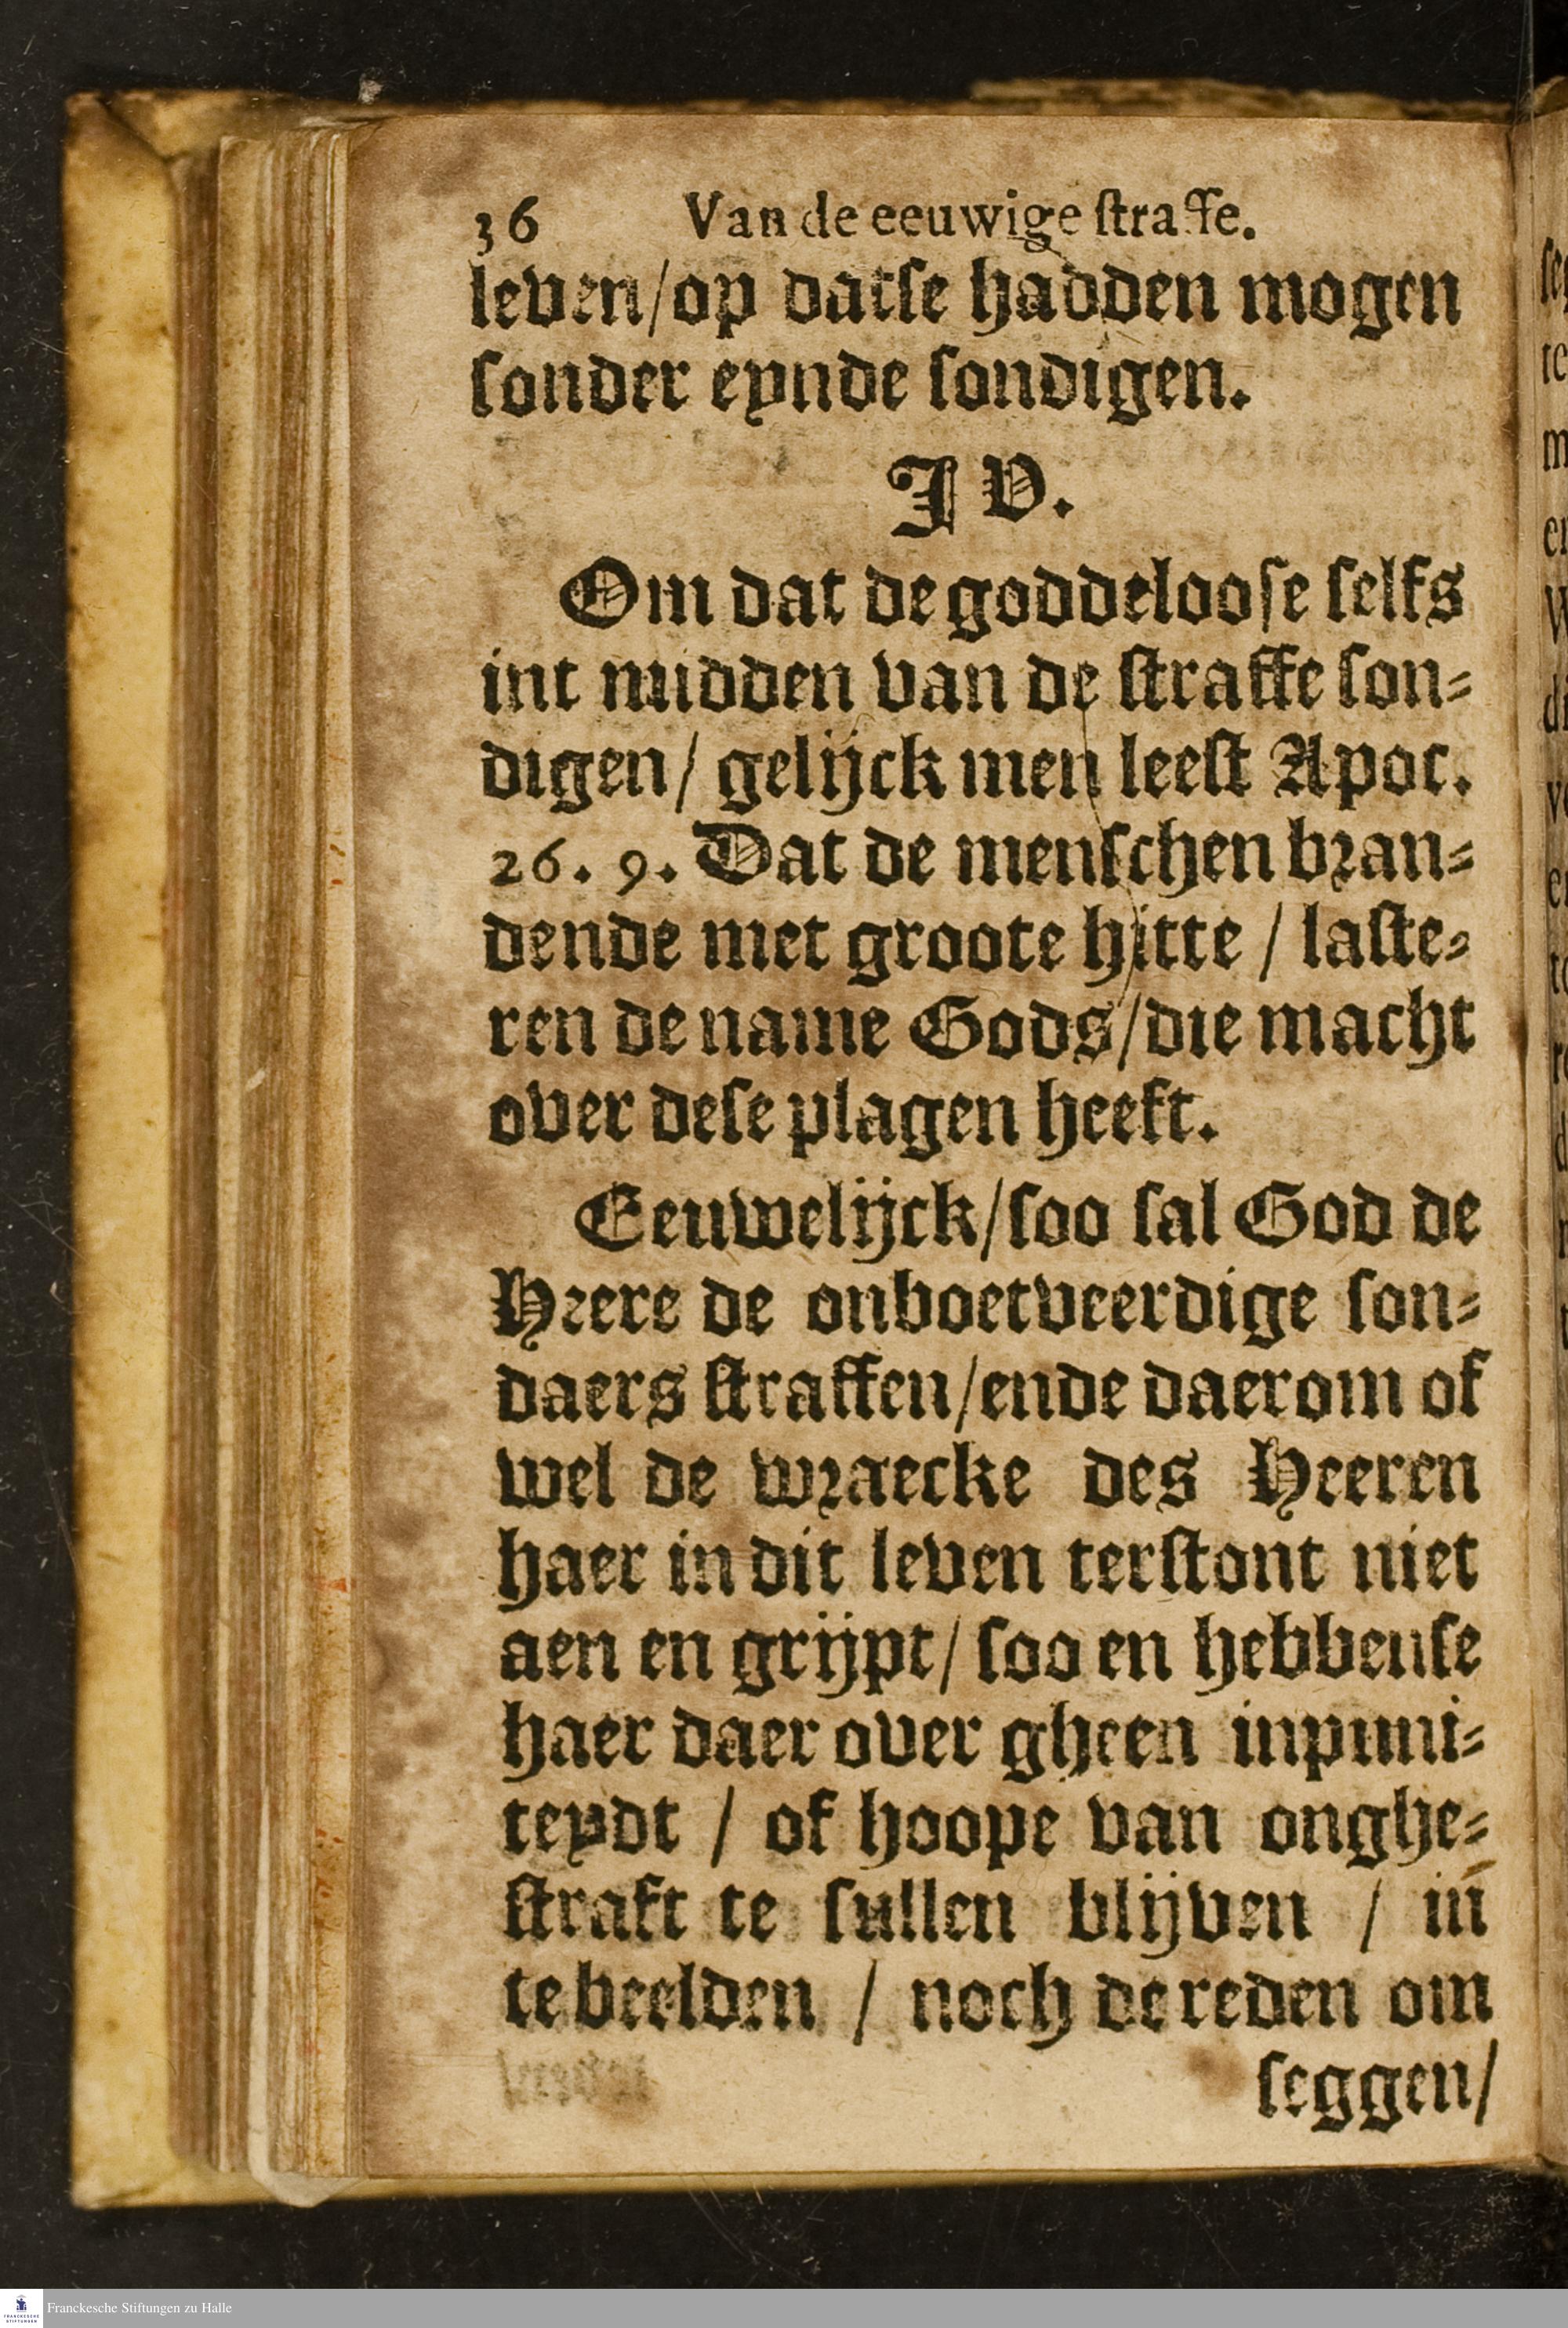 36 Van de eeuwige straffe.
leven/op datse hadden mogen
sonder eynde sondigen.
IV.
Om dat de goddeloose selfs
int midden van de straffe son-
digen/ gelijck men leest Apoc.
26. 9. Dat de menschen bran-
dende met groote hitte / laste-
ren de name Gods/die macht
over dese plagen heeft.
Eeuwelijck/soo sal God de
Heere de onboetveerdige son-
daers straffen/ende daerom of
wel de wraecke des Heeren
haer in dit leven terstont niet
aen en grijpt/ soo en hebbense
haer daer over gheen inpuni-
teydt / of hoope van onghe-
straft te sullen blijven / in
te beelden / noch de reden om
seggen/
Franckesche Stiftungen zu Halle